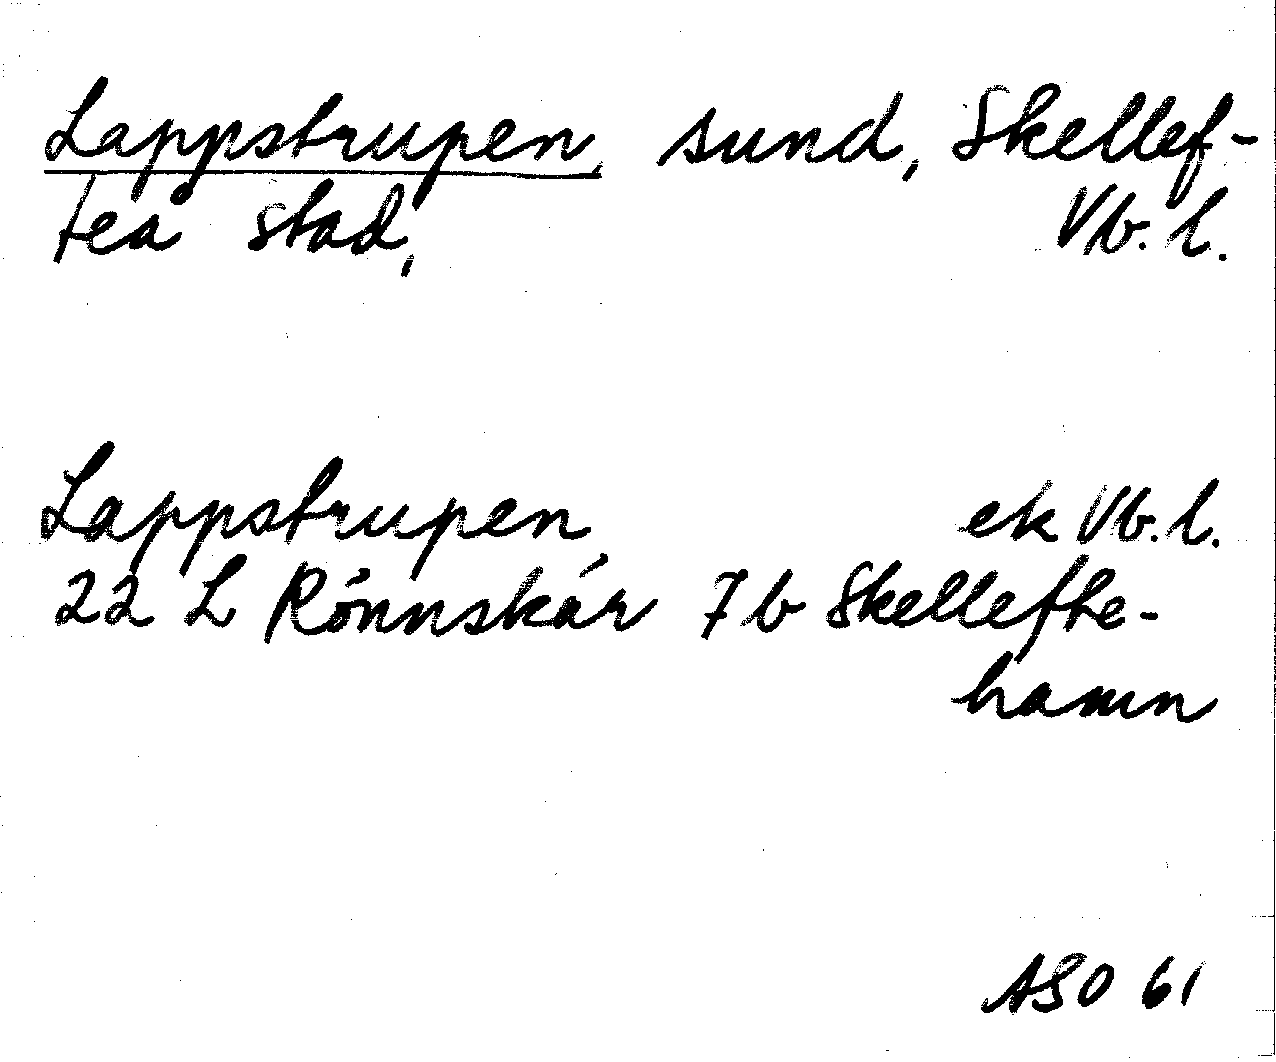 Lappstrupen, sund, Skellef-
teå stad, Vb. l.
Lappstrupen, ek Vb. l.
22 L Rönnskär 7b Skellefte-
hamn
ASO 61